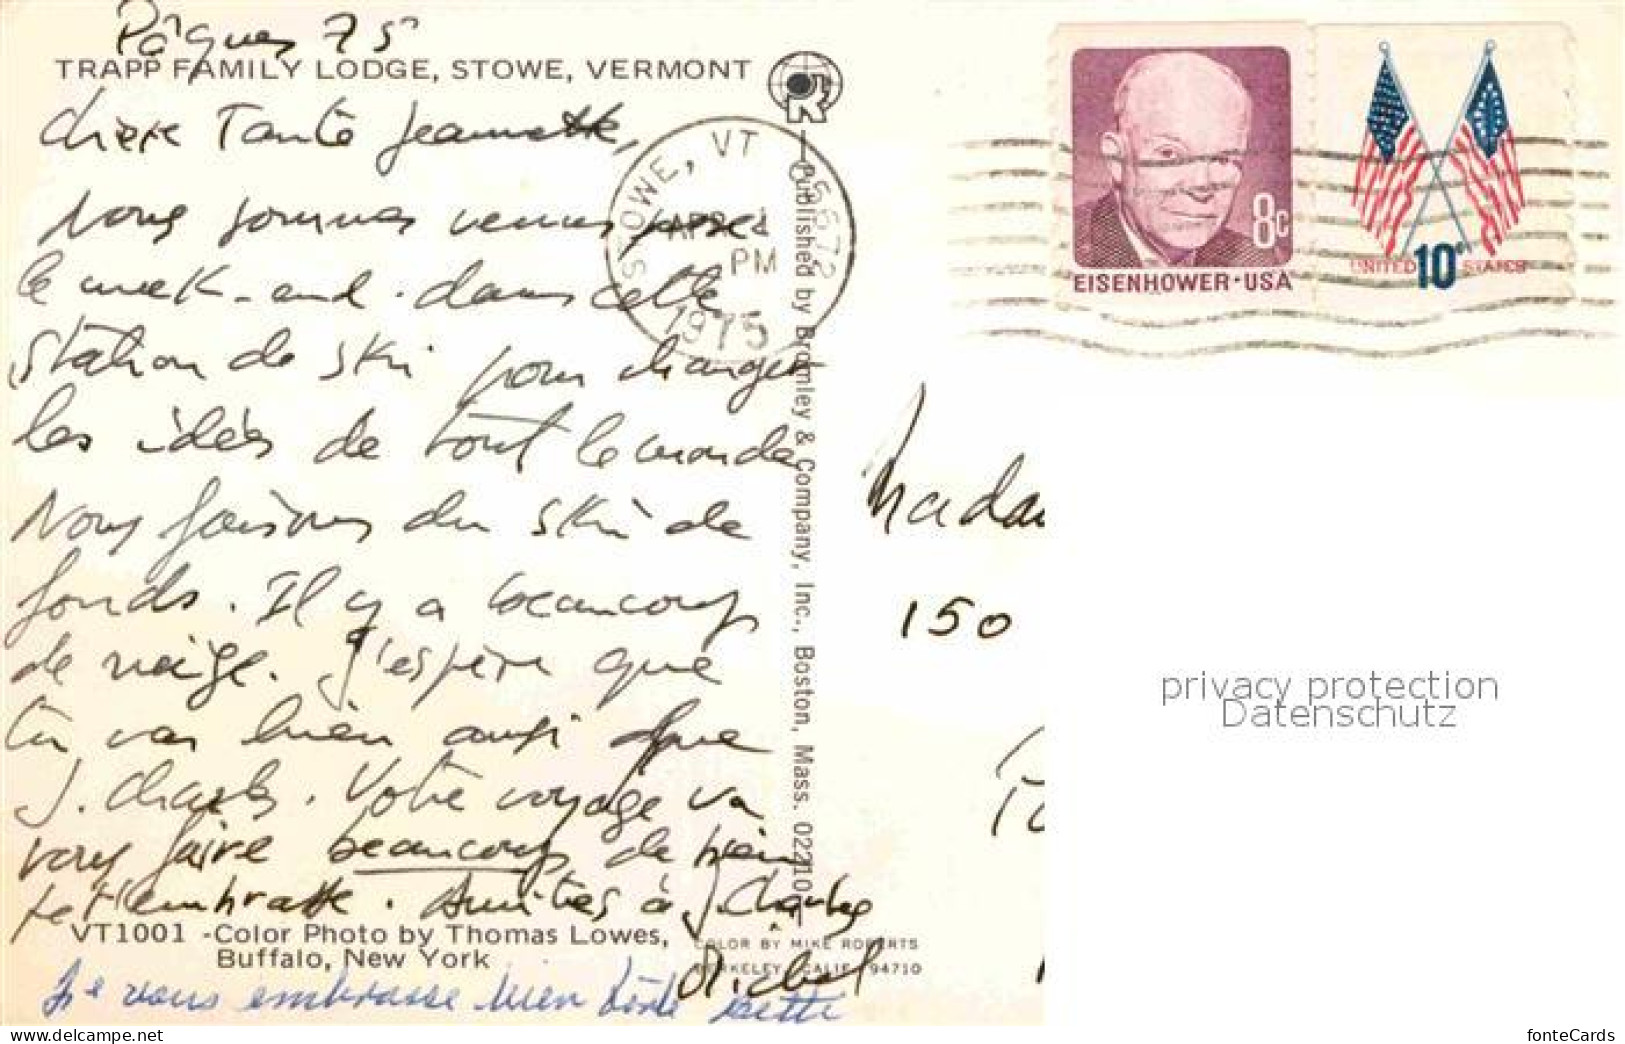 Pâques 75
TRAPP FAMILY LODGE, STOWE, VERMONT
Chère Tante Jeannette,
Nous sommes venus passer
le week-end dans cette
station de ski pour changer
les idées de tout le monde
Nous faisons du ski de
fonds. Il y a beaucoup
de neige. J'espère que
tu vas bien ainsi que
J. Charles. Votre voyage va
vous faire beaucoup de bien
Je t'embrasse. Amitiés à J. Charles
Michel
VT1001 -Color Photo by Thomas Lowes,
Buffalo, New York
COLOR BY MIKE ROBERTS
BERKELEY, CALIF. 94710
Je vous embrasse bien
Published by Bromley & Company, Inc., Boston, Mass. 02210
STOWE, VT
APR 1
PM
1975
05672
8c
EISENHOWER·USA
UNITED 10c STATES
Madam
150
privacy protection
Datenschutz
www.delcampe.net
vdh
fonteCards